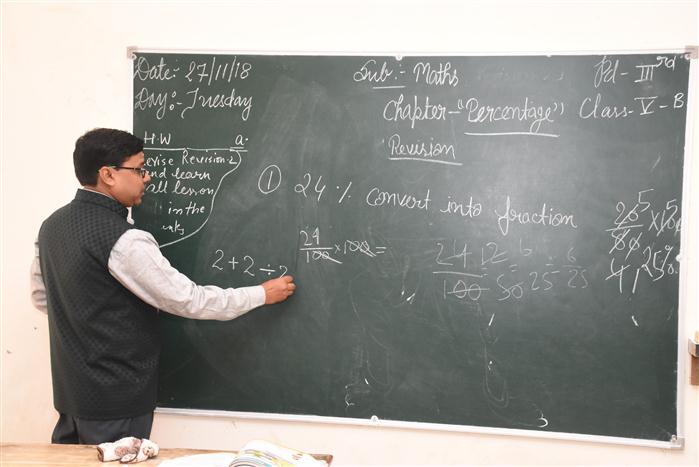 Date:- 27/11/18
Sub:- Maths
Pd- III rd
Day:- Tuesday
Chapter-"Percentage"
Class- V-B
H.W
Revision
Revise Revision-2
and learn
all lesson
in the
① 24 % convert into fraction
24/100 × 100 =
24 12 6 6
100 50 25 25
2+2÷2
25%